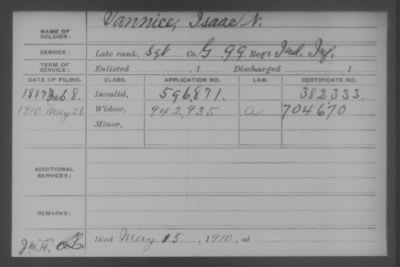 NAME OF SOLDIER: Vannice, Isaac N.
SERVICE: Late rank, Sgt Co. G, 99 Reg't Ind. Inf.
TERM OF SERVICE: Enlisted , 1 Discharged , 1
DATE OF FILING. CLASS. APPLICATION NO. LAW. CERTIFICATE NO.
1887 Feb 8. Invalid, 596,871. 382333.
1910 May 28 Widow, 942,935 a 704670
Minor,
ADDITIONAL SERVICES:
REMARKS:
J.M.H. Died May 15, 1910, at